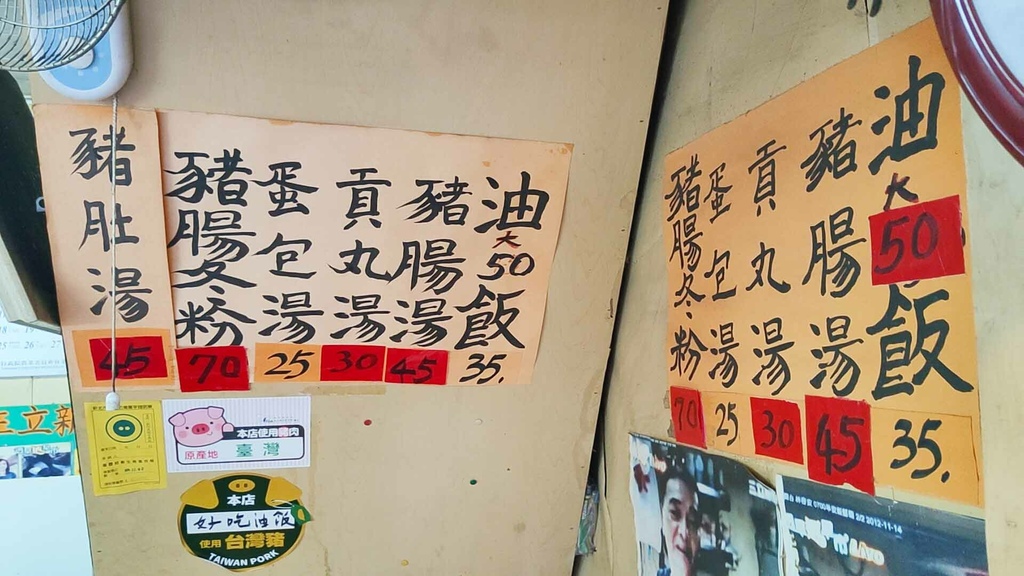 油飯
大50
35.
豬腸湯
45
貢丸湯
30
蛋包湯
25
豬腸冬粉
70
豬肚湯
45
油飯
大50
35.
豬腸湯
45
貢丸湯
30
蛋包湯
25
豬腸冬粉
70
本店使用豬肉
原產地 臺灣
本店
好吃油飯
使用台灣豬
TAIWAN PORK
立新
2012-11-14